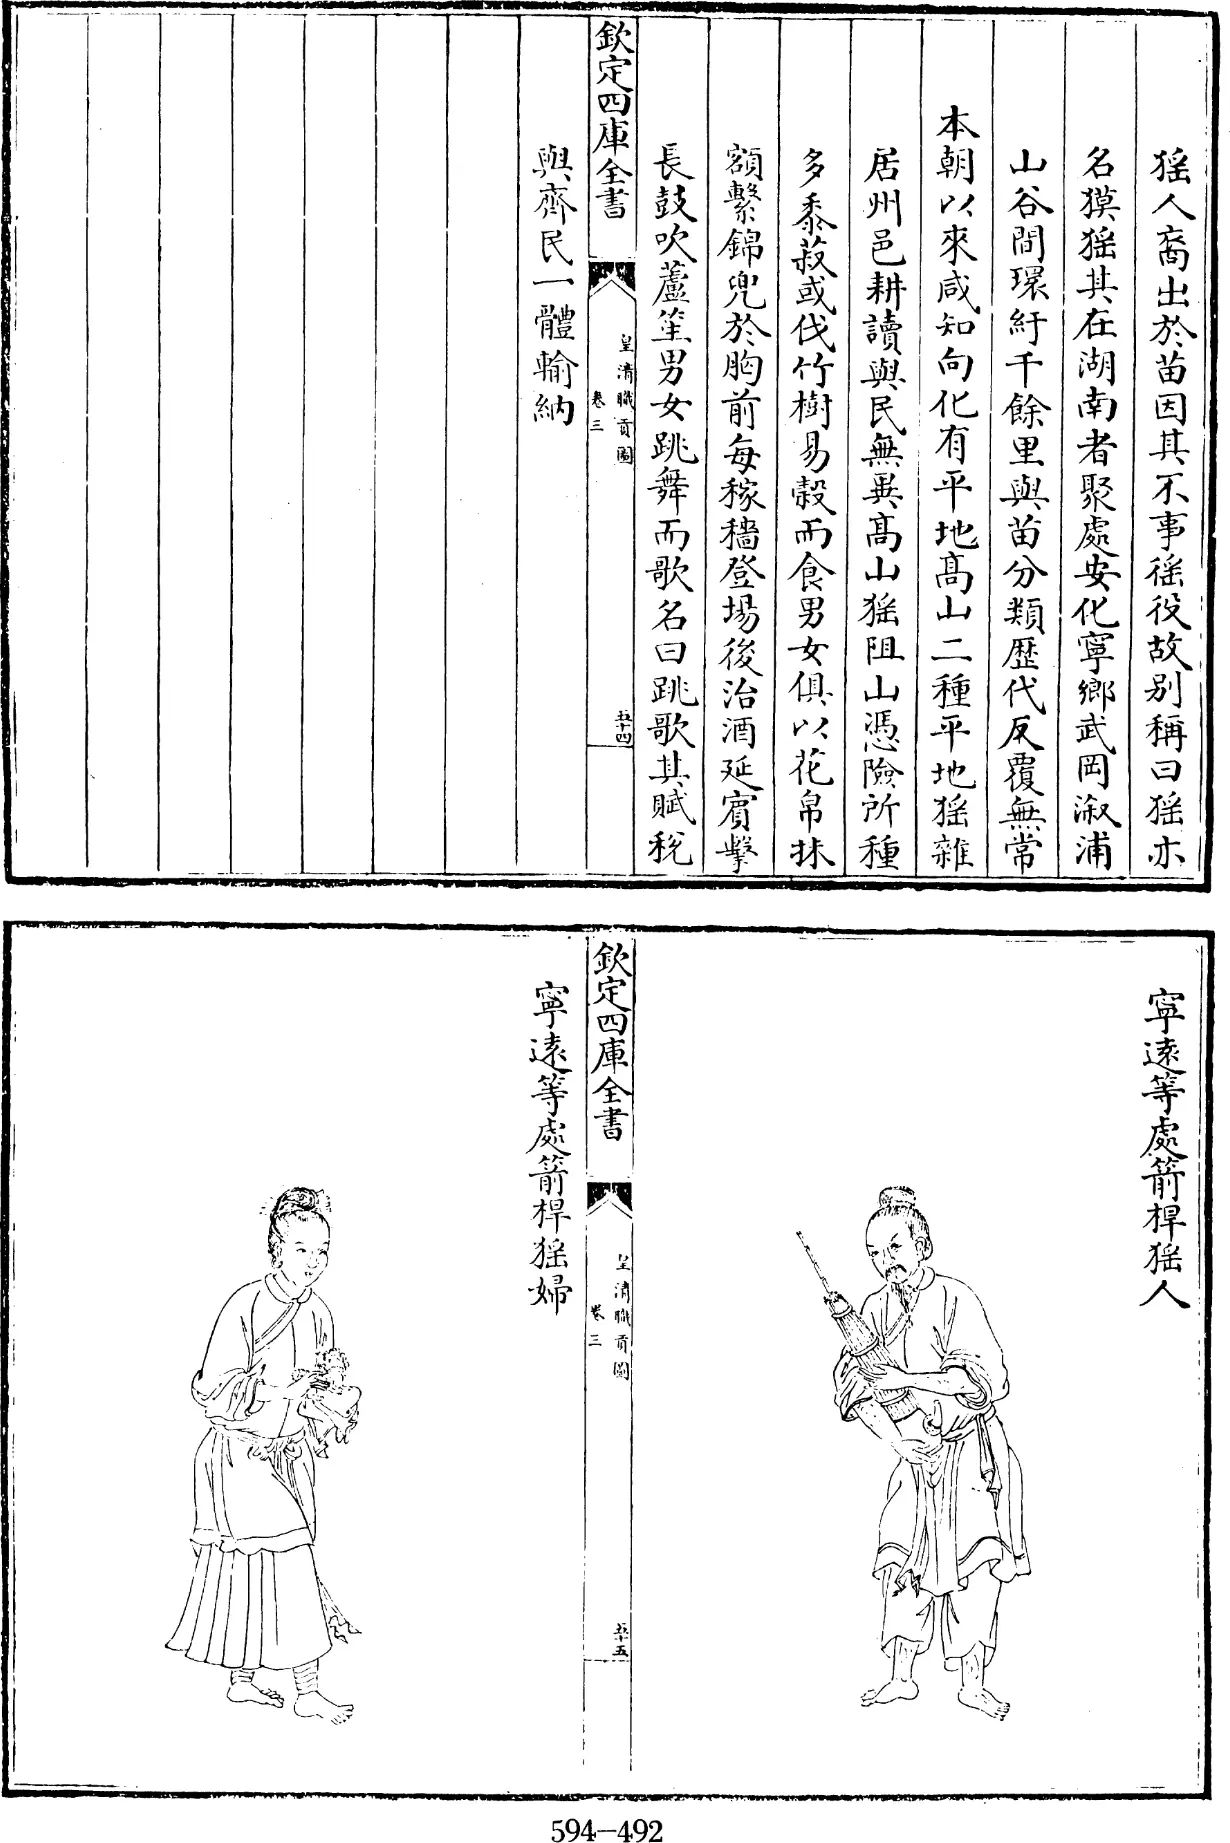 猺人裔出於苗因其不事徭役故别稱曰猺亦
名獏猺其在湖南者聚處安化寧鄉武岡溆浦
山谷間環紆千餘里與苗分類歴代反覆無常
本朝以來咸知向化有平地髙山二種平地猺雜
居州邑耕讀與民無異髙山猺阻山憑險所種
多黍菽或伐竹樹易榖而食男女俱以花帛抹
額繫錦兜於胸前每稼穡登場後治酒延賔擊
長鼓吹蘆笙男女跳舞而歌名曰跳歌其賦稅
欽定四庫全書
皇清職貢圖
卷三
五十四
與齊民一體輸納
寧遠等處箭桿猺人
欽定四庫全書
皇清職貢圖
卷三
五十五
寧遠等處箭桿猺婦
594-492